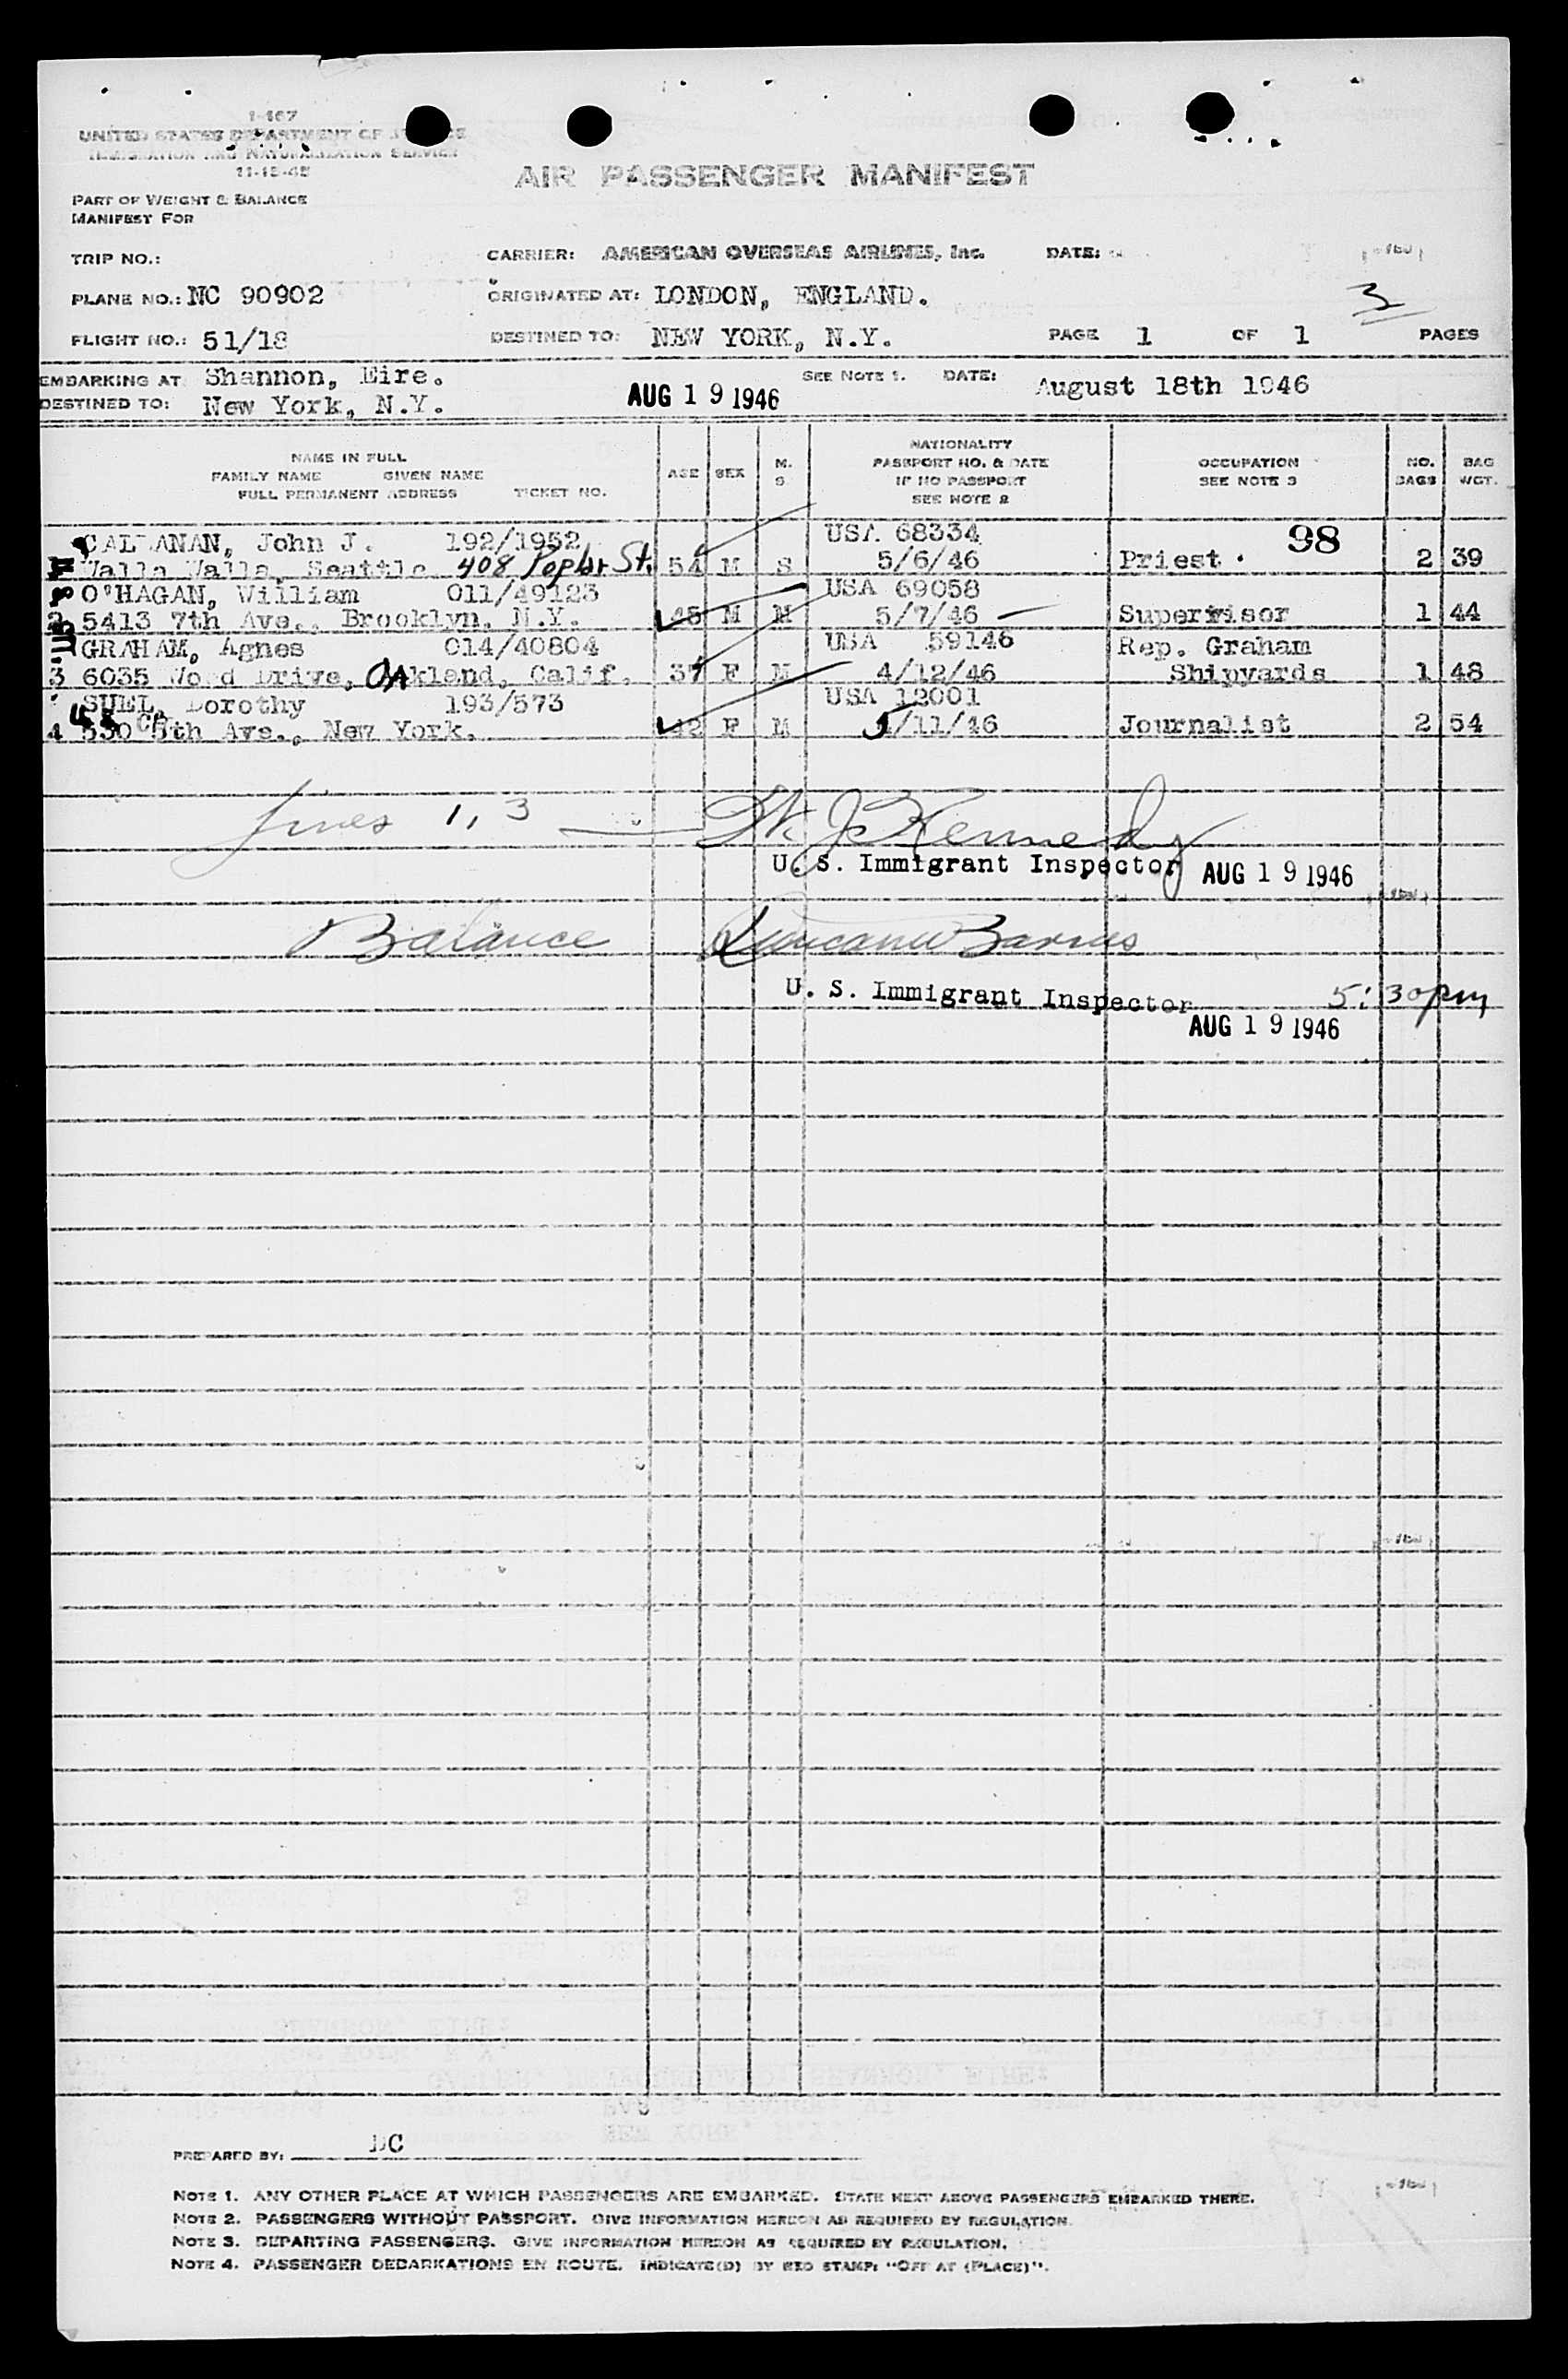 I-467
UNITED STATES DEPARTMENT OF JUSTICE
IMMIGRATION AND NATURALIZATION SERVICE
11-15-45
AIR PASSENGER MANIFEST
PART OF WEIGHT & BALANCE
MANIFEST FOR
TRIP NO.: CARRIER: AMERICAN OVERSEAS AIRLINES, Inc. DATE:
PLANE NO.: NC 90902 ORIGINATED AT: LONDON, ENGLAND. 3
FLIGHT NO.: 51/18 DESTINED TO: NEW YORK, N.Y. PAGE 1 OF 1 PAGES
EMBARKING AT Shannon, Eire. SEE NOTE 1. DATE: August 18th 1946
DESTINED TO: New York, N.Y. AUG 19 1946
NAME IN FULL
FAMILY NAME GIVEN NAME
FULL PERMANENT ADDRESS TICKET NO.
AGE SEX M. S
NATIONALITY
PASSPORT NO. & DATE
IF NO PASSPORT
SEE NOTE 2
OCCUPATION
SEE NOTE 3
NO. BAGS
BAG WGT.
CALLANAN, John J. 192/1952 USA 68334 98
Walla Walla, Seattle 408 Poplar St. 54 M S 5/6/46 Priest. 2 39
O'HAGAN, William 011/49123 USA 69058
2 5413 7th Ave., Brooklyn, N.Y. 45 M M 5/7/46 Supervisor 1 44
GRAHAM, Agnes 014/40804 USA 59146 Rep. Graham
3 6035 Wood Drive, OAkland, Calif. 37 F M 4/12/46 Shipyards 1 48
SUEL, Dorothy 193/573 USA 12001
4 530 5th Ave., New York. 42 F M /11/46 Journalist 2 54
Lines 1, 3 Kennedy
U. S. Immigrant Inspector AUG 19 1946
Balance Barnes
U. S. Immigrant Inspector 5:30pm
AUG 19 1946
PREPARED BY: DC
NOTE 1. ANY OTHER PLACE AT WHICH PASSENGERS ARE EMBARKED. STATE NEXT ABOVE PASSENGERS EMBARKED THERE.
NOTE 2. PASSENGERS WITHOUT PASSPORT. GIVE INFORMATION HEREON AS REQUIRED BY REGULATION.
NOTE 3. DEPARTING PASSENGERS. GIVE INFORMATION HEREON AS REQUIRED BY REGULATION.
NOTE 4. PASSENGER DEBARKATIONS EN ROUTE. INDICATE(D) BY RED STAMP: "OFF AT (PLACE)".